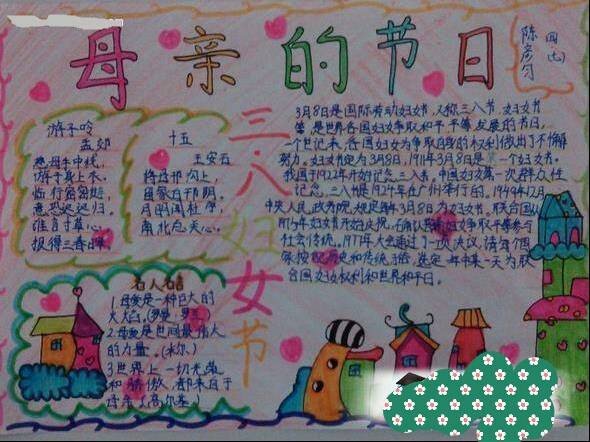 母亲的节日
四(七)
陈彦匀
三·八妇女节
游子吟
孟郊
慈母手中线，
游子身上衣。
临行密密缝，
意恐迟迟归。
谁言寸草心，
报得三春晖。
十五
王安石
将母邗沟上，
留家白邗阴。
月明闻杜宇，
南北总关心。
3月8日是国际劳动妇女节，又称三八节、妇女节
等，是世界各国妇女争取和平、平等、发展的节日，
一个世纪来，各国妇女为争取自己的权利做出了不懈
努力。妇女节定为3月8日，1911年3月8日是第一个妇女节。
我国于1922年开始纪念三八节。中国妇女第一次群众性
纪念三八节是1924年在广州举行的。1949年12月，
中央人民政务院规定每年3月8日为妇女节。联合国从
1975年妇女节开始庆祝，
社会传统。1977年大会通过了一项决议，请每个国
家按照历史和传统习俗，选定一年中某一天为联
合国妇女权利和世界和平日。
名人名言
1.母爱是一种巨大的
火焰。(罗曼·罗兰)
2.母爱是世间最伟大
的力量。(米尔)
3.世界上一切光荣
和骄傲，都来自于
母亲。(高尔基)